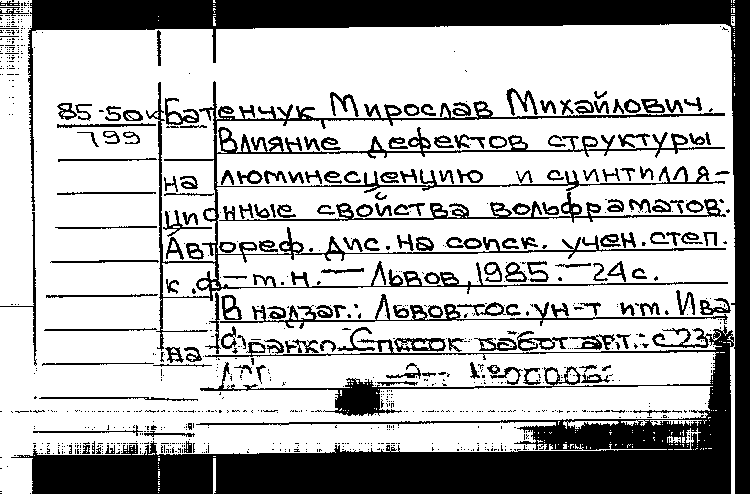 85-50к Батенчук, Мирослав Михайлович.
199
Влияние дефектов структуры
на люминесценцию и сцинтилля-
ционные свойства вольфраматов:
Автореф. дис. на соиск. учен. степ.
к.ф.-м.н. — Львов, 1985. — 24 с.
В надзаг.: Львов. гос. ун-т им. Ива-
на Франко. Список работ авт.: с 23
№